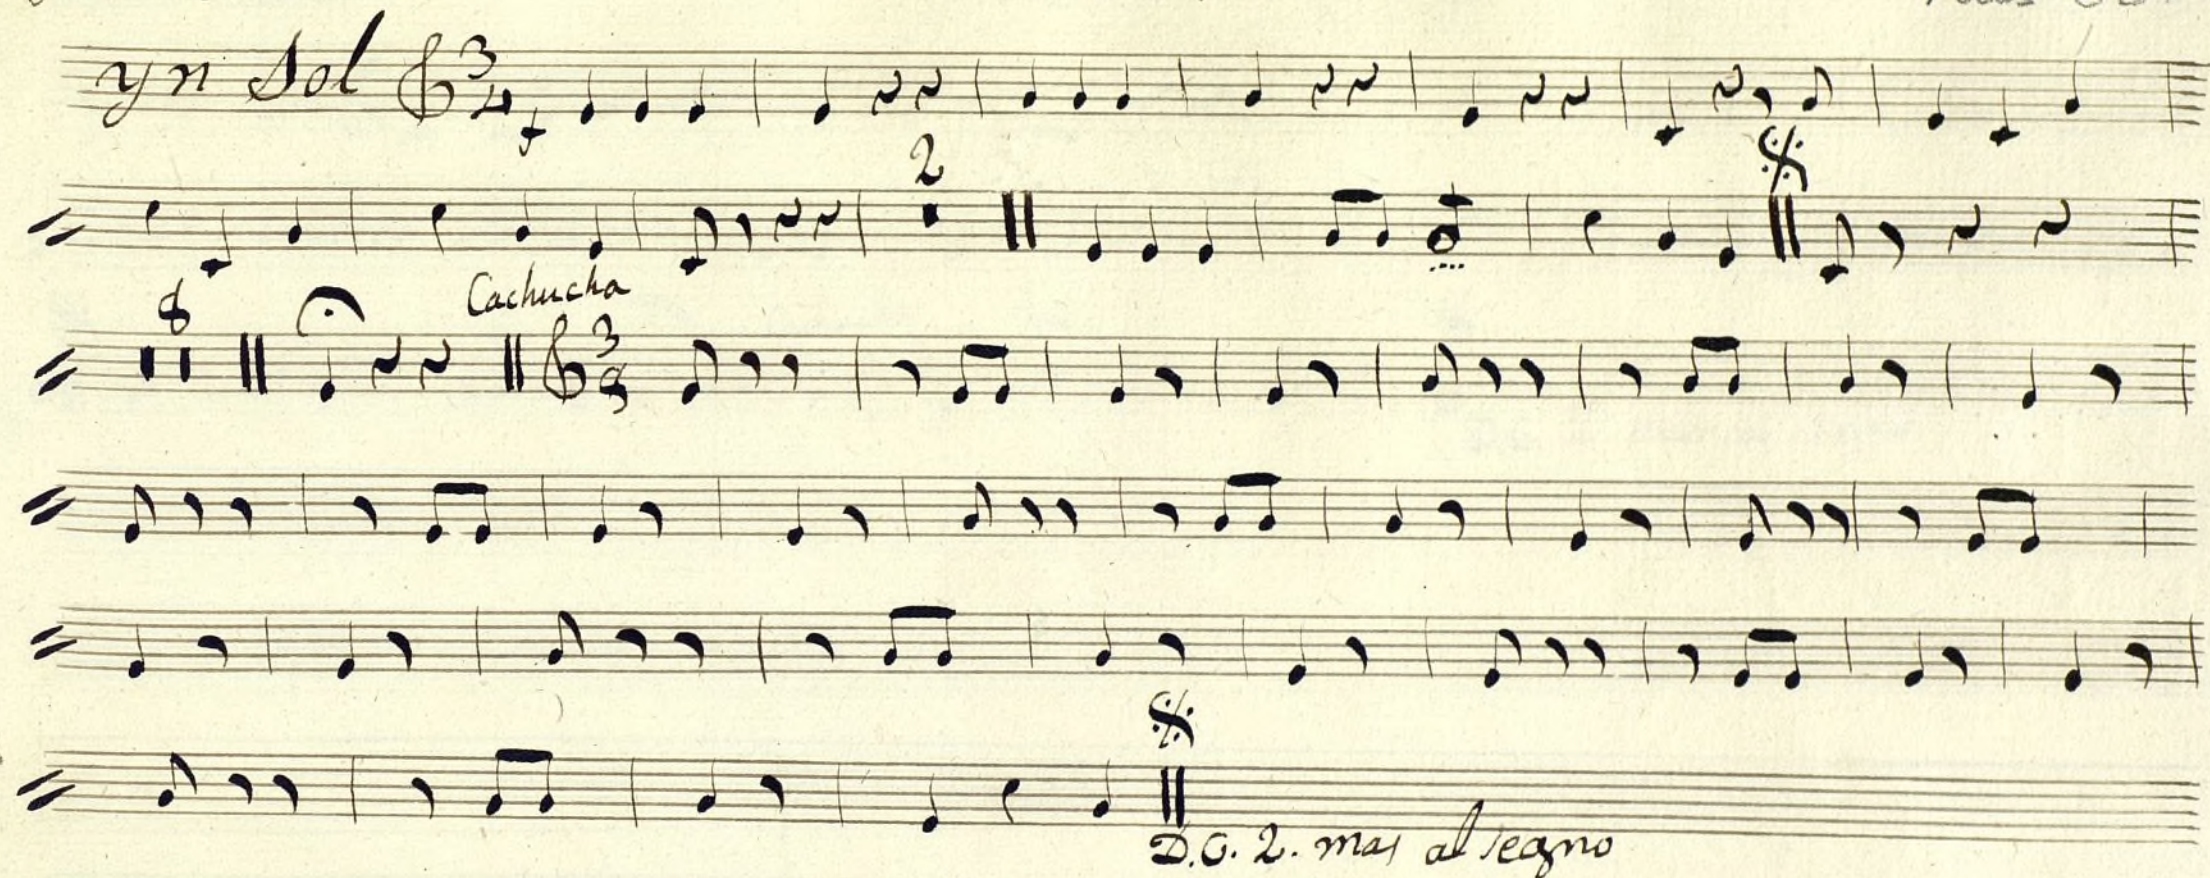 yn Sol 3 4 f
2
8 Cachucha 3 8
D.C. 2. mas al segno